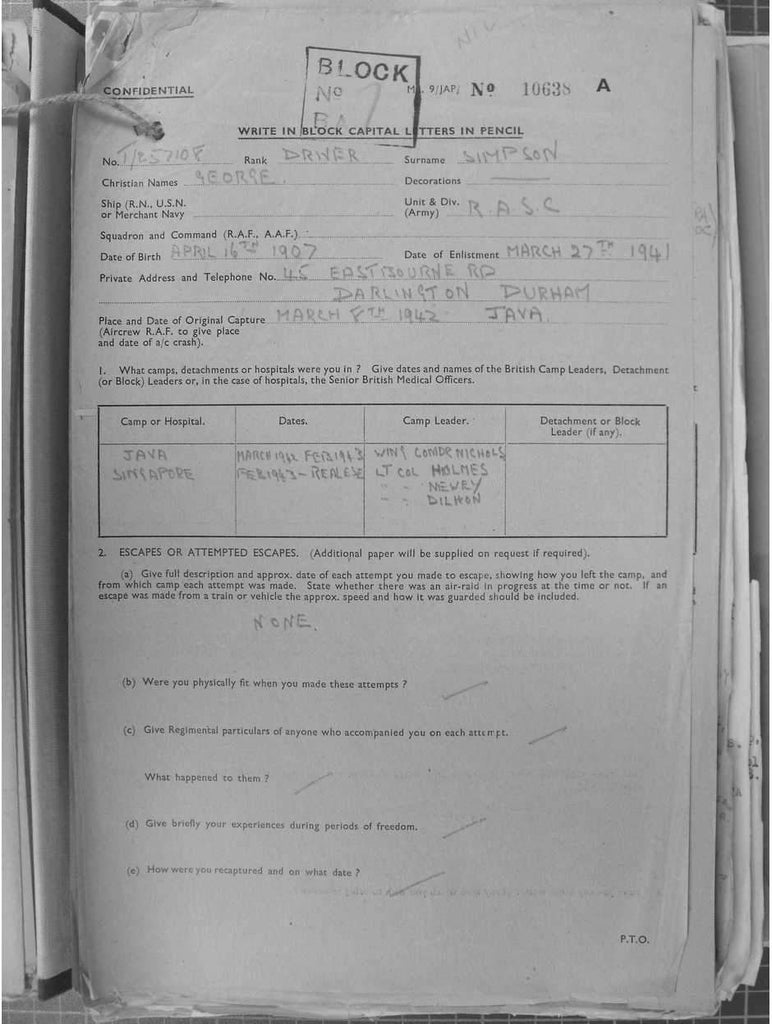 BLOCK
No 7
CONFIDENTIAL
M. 9/JAP/ No 10638 A
WRITE IN BLOCK CAPITAL LETTERS IN PENCIL
No. T/257108 Rank DRIVER Surname SIMPSON
Christian Names GEORGE. Decorations
Ship (R.N., U.S.N. or Merchant Navy Unit & Div. (Army) R.A.S.C
Squadron and Command (R.A.F., A.A.F.)
Date of Birth APRIL 16TH 1907 Date of Enlistment MARCH 27TH 1941
Private Address and Telephone No. 45 EASTBOURNE RD
DARLINGTON DURHAM
Place and Date of Original Capture MARCH 8TH 1942 JAVA.
(Aircrew R.A.F. to give place
and date of a/c crash).
1. What camps, detachments or hospitals were you in ? Give dates and names of the British Camp Leaders, Detachment
(or Block) Leaders or, in the case of hospitals, the Senior British Medical Officers.
Camp or Hospital. Dates. Camp Leader. Detachment or Block Leader (if any).
JAVA MARCH 1942 FEB 1943 WING COMDR NICHOLS
SINGAPORE FEB 1943 - REALESE LT COL HOLMES
" " NEWEY
" " DILHON
2. ESCAPES OR ATTEMPTED ESCAPES. (Additional paper will be supplied on request if required).
(a) Give full description and approx. date of each attempt you made to escape, showing how you left the camp, and
from which camp each attempt was made. State whether there was an air-raid in progress at the time or not. If an
escape was made from a train or vehicle the approx. speed and how it was guarded should be included.
NONE.
(b) Were you physically fit when you made these attempts ?
(c) Give Regimental particulars of anyone who accompanied you on each attempt.
What happened to them ?
(d) Give briefly your experiences during periods of freedom.
(e) How were you recaptured and on what date ?
P.T.O.